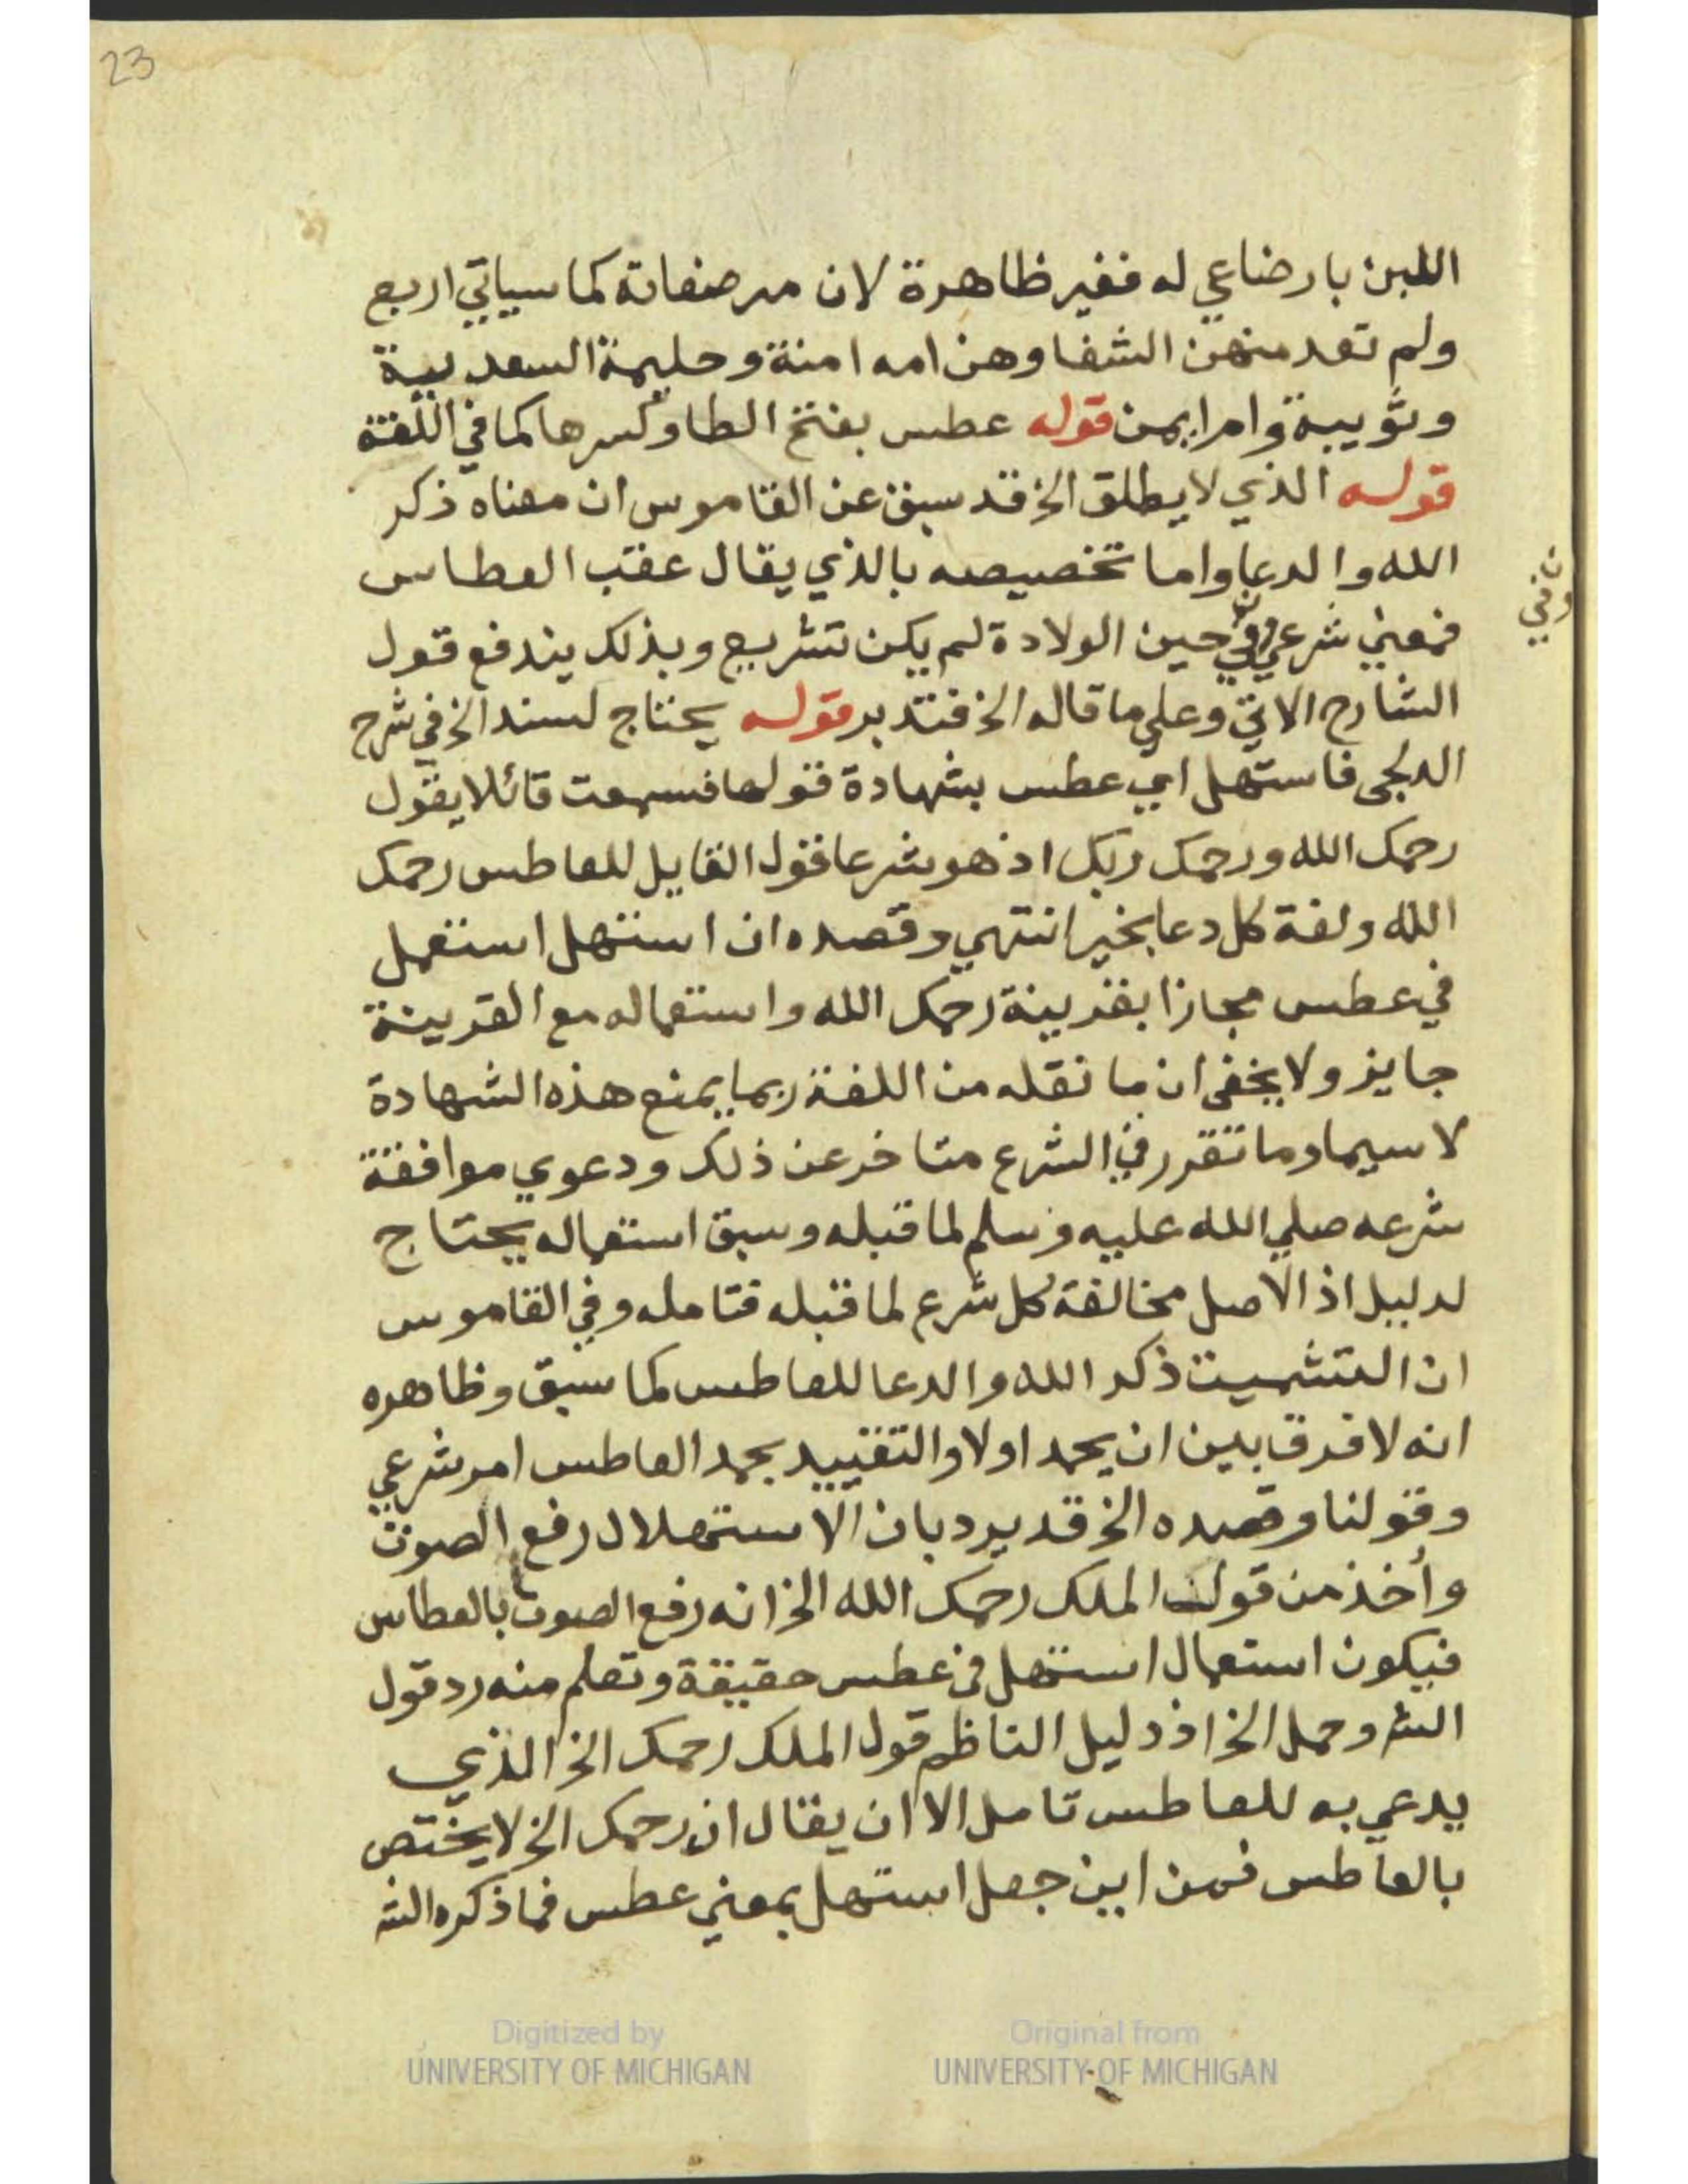 23
اللبن بارضاعي له فغير ظاهرة لان مرضعاته كما سياتي اربع
ولم تعد منهن الشفا وهن امه امنة وحليمة السعدبية
وثويبة وام ايمن قوله عطس بفتح الطا وكسرها كما في اللغة
قوله الذي لا يطلق الخ قد سبق عن القاموس ان معناه ذكر
الله والدعا واما تخصيصه بالذي يقال عقب العطاس
فمعني شرعي وفي حين الولادة لم يكن تشريع وبذلك يندفع قول
وفي
الشارح الاتي وعلي ما قاله الخ فتدبر قوله يحتاج لسند الخ في شرح
الدلجي فاستهل اي عطس بشهادة قولها فسمعت قائلا يقول
رحمك الله ورحمك ربك اذ هو شرعا قول القايل للعاطس رحمك
الله ولغة كل دعا بخير انتهي وقصده ان استهل استعمل
في عطس مجازا بقرينة رحمك الله واستعماله مع القرينة
جايز ولا يخفي ان ما نقله من اللغة ربما يمنع هذه الشهادة
لا سيما وما تقرر في الشرع متاخر عن ذلك ودعوي موافقة
شرعه صلي الله عليه وسلم لما قبله وسبق استعماله يحتاج
لدليل اذ الاصل مخالفة كل شرع لما قبله فتامله وفي القاموس
ان التشميت ذكر الله والدعا للعاطس كما سبق وظاهره
انه لا فرق بين ان يحمد اولا والتقييد بحمد العاطس امر شرعي
وقولنا وقصده الخ قد يرد بان الاستهلال رفع الصوت
وأخذ من قول الملك رحمك الله الخ انه رفع الصوت بالعطاس
فيكون استعمال استهل في عطس حقيقة وتعلم منه رد قول
الش وحمل الخ اذ دليل الناظم قول الملك رحمك الخ الذي
يدعي به للعاطس تامل الا ان يقال ان رحمك الخ لا يختص
بالعاطس فمن اين جعل استهل بمعني عطس فما ذكره الش
Digitized by
UNIVERSITY OF MICHIGAN
Original from
UNIVERSITY OF MICHIGAN